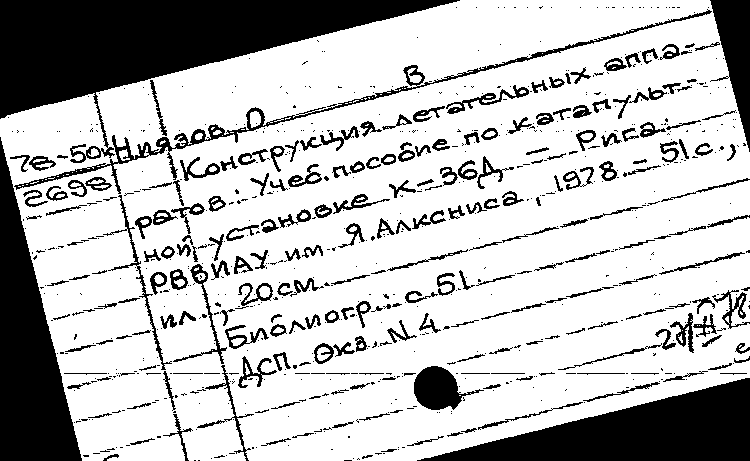 В
78-50к Ниязов, О
2698 Конструкция летательных аппа-
ратов. Учеб. пособие по катапульт-
ной установке К-36Д. – Рига:
РВВИАУ им. Я. Алксниса, 1978. – 51 с.,
ил.; 20 см.
Библиогр.: с. 51.
ДСП. Экз. N 4.